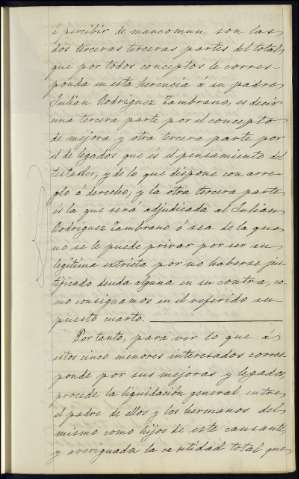 á percibir de mancomun son las
dos terceras terceras partes del total
que por todos conceptos le corres-
ponda en esta herencia á su padre
Julian Rodriguez Zambrano, es decir
una tercera parte por el concepto
de mejora y otra tercera parte por
el de legados que es el pensamiento del
testador, y de lo que dispone con arre-
glo á derecho; y la otra tercera parte
es la que será adjudicada al Julian
Rodriguez Zambrano ó sea de la que
no se le puede privar por ser su
legitima estricta por no haberse jus-
tificado deuda alguna en su contra, co-
mo consignamos en el referido su-
puesto cuarto.
Por tanto, para ver lo que á
estos cinco menores interesados corres-
ponde por sus mejoras y legados
procede la liquidación general, entre
el padre de ellos y los hermanos del
mismo como hijos de este causante,
y averiguada la cantidad total que